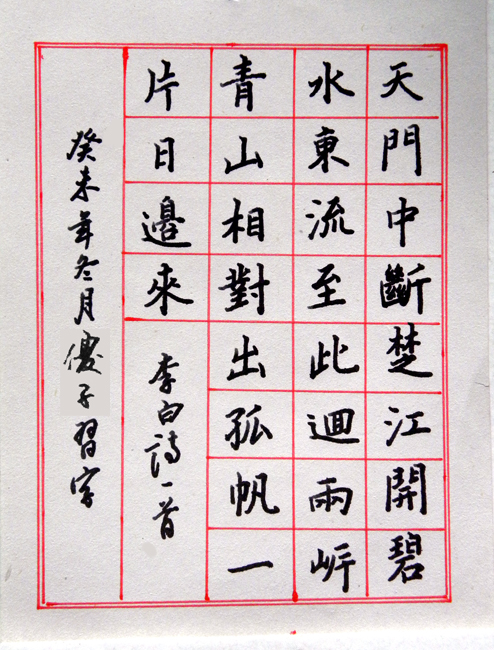 天門中斷楚江開碧
水東流至此迴兩岸
青山相對出孤帆一
片日邊來
李白詩一首
癸未年冬月傻子習字